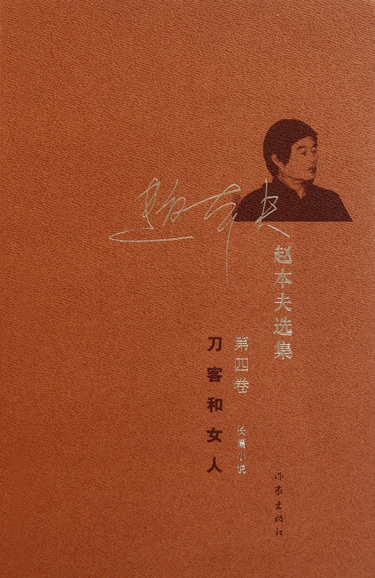 赵本夫
赵本夫选集
第四卷
长篇小说
刀客和女人
作家出版社